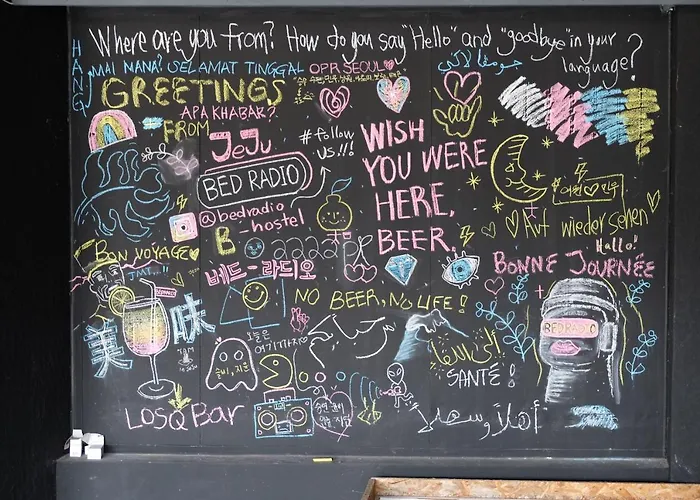 Where are you from? How do you say "Hello" and "goodbye" in your
language?
HANG
MAI MANA? SELAMAT TINGGAL
OPR SEOUL
GREETINGS
APA KHABAR?
FROM
JeJu
#follow
us!!!
WISH
YOU WERE
HERE,
BEER.
BED RADIO
@bedradio
-hostel
B
Auf wieder sehen
Hallo!
BON VOYAGE
BONNE JOURNÉE
베드-라디오
NO BEER, NO LIFE!
BEDRADIO
美味
오늘은
여기까지
SANTÉ!
LOSQ BAR
أهلاً وسهلاً